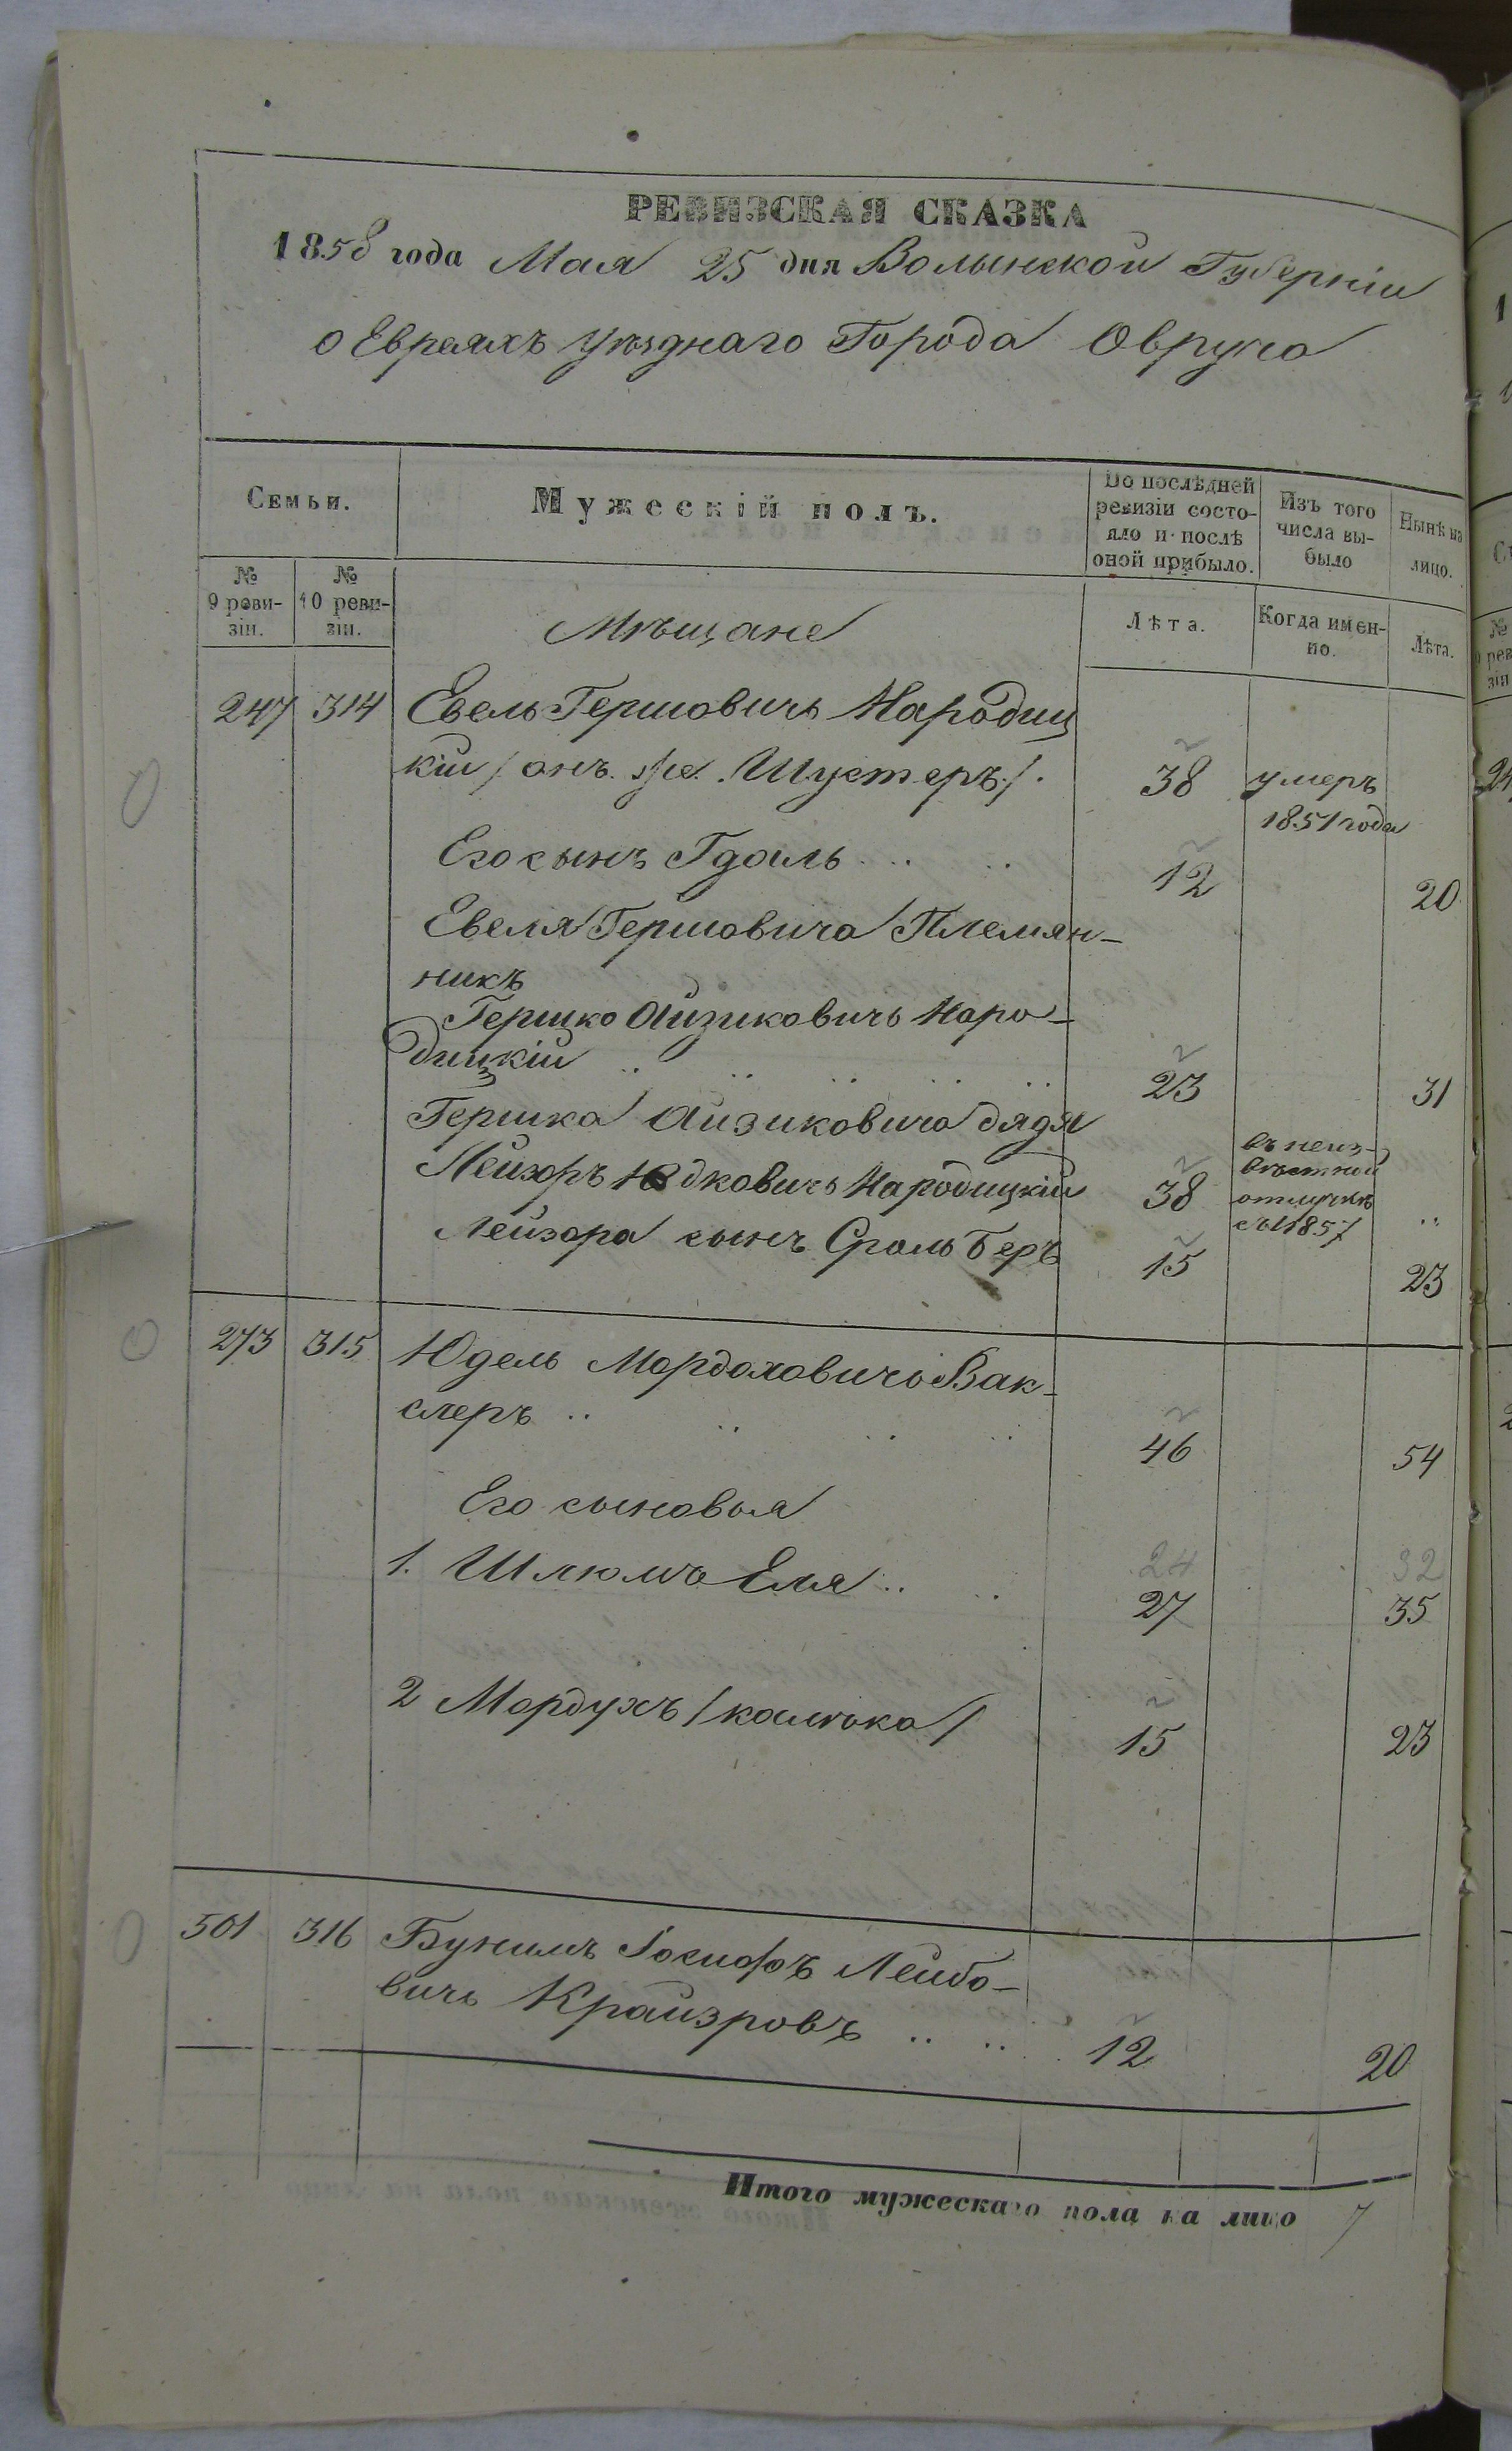 РЕВИЗСКАЯ СКАЗКА
1858 года Мая 25 дня Волынской Губерніи
о Евреяхъ Уѣзднаго Города Овруча
Семьи.
Мужескій полъ.
По послѣдней ревизіи состояло и послѣ оной прибыло.
Изъ того числа выбыло
Нынѣ на лицо.
№ 9 ревизіи.
№ 10 ревизіи.
Мѣщане
Лѣта.
Когда именно.
Лѣта.
247 314 Евель Гершовичъ Народиц
кій / онъ же Шустеръ /. 38 умеръ
1851 года
Его сынъ Гдаль .. .. 12 20
Евеля Гершовича Племян-
никъ
Гершко Айзиковичъ Наро-
дицкій .. .. .. .. .. 23 31
Гершка Айзиковича дядя
Лейзоръ Юдковичъ Народицкій 38 въ неиз-
вѣстной
отлучкѣ
съ 1857 ..
Лейзора сынъ Сроль Беръ 15 23
273 315 Юдель Мордоховичъ Вак-
слеръ .. .. .. .. 46 54
Его сыновья
24 32
1. Шлюмъ Еля .. .. 27 35
2 Мордухъ / калѣка / 15 23
501 316 Бунимъ Іосифъ Лейбо-
вичъ Крайзровъ .. .. 12 20
Итого мужескаго пола на лицо 7